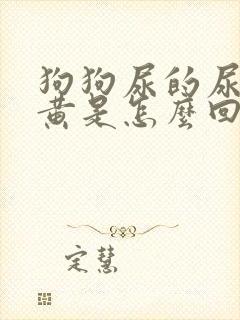 狗狗尿的尿
黄是怎麼回
定慧